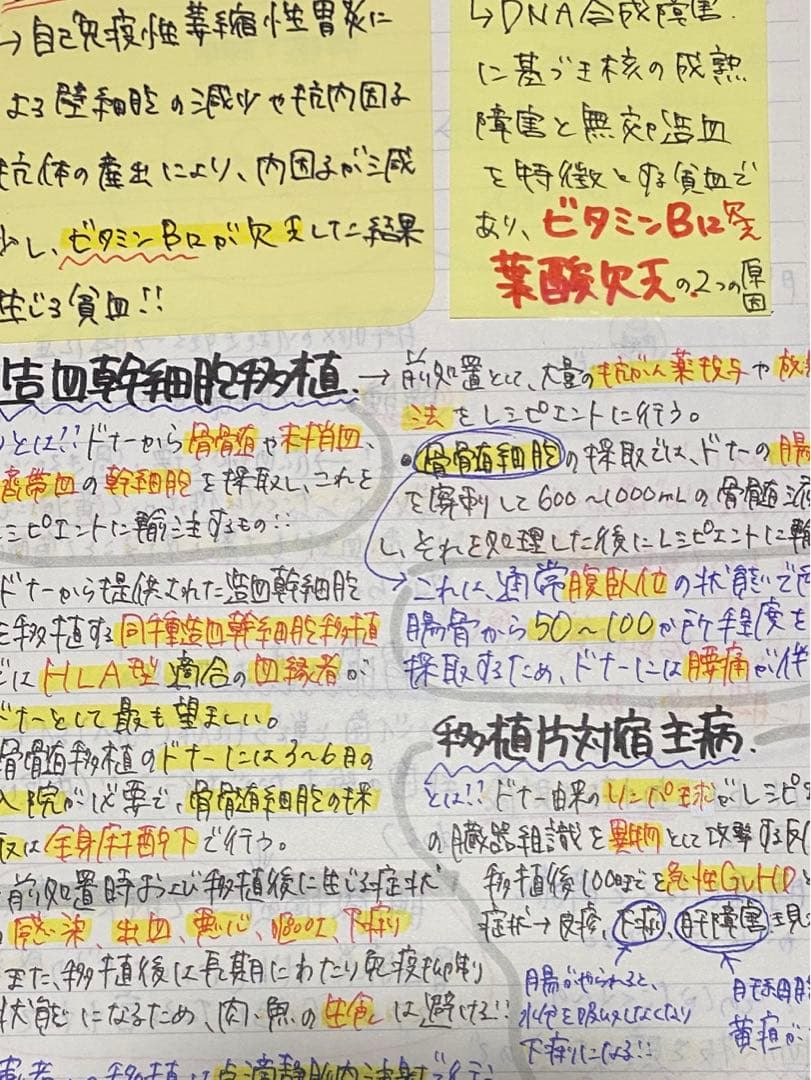 →自己免疫性萎縮性胃炎に
よる壁細胞の減少や抗内因子
抗体の産生により、内因子が減
少し、ビタミンB12が欠乏した結果
生じる貧血!!
↳DNA合成障害
に基づき核の成熟
障害と無効造血
を特徴とする貧血で
あり、ビタミンB12欠乏
葉酸欠乏の2つの原因
造血幹細胞移植
とは!!ドナーから骨髄や末梢血、
臍帯血の幹細胞を採取し、これを
レシピエントに輸注するもの!!
ドナーから提供された造血幹細胞
を移植する同種造血幹細胞移植
ではHLA型適合の血縁者が
ドナーとして最も望ましい。
骨髄移植のドナーには3〜6日の
入院が必要で、骨髄細胞の採
取は全身麻酔下で行う。
前処置時および移植後に生じる症状
感染、出血、悪心、嘔吐、下痢
また、移植後は長期にわたり免疫抑制
状態になるため、肉・魚の生食は避ける!!
移植は点滴静脈内注射で行
→前処置として、大量の抗がん薬投与や放
法をレシピエントに行う。
•骨髄細胞の採取では、ドナーの腸
を穿刺して600〜1000mLの骨髄液
し、それを処理した後にレシピエントに輸
これは、通常腹臥位の状態で
腸骨から50〜100か所程度を
採取するため、ドナーには腰痛が伴
移植片対宿主病
とは!!ドナー由来のリンパ球がレシピ
の臓器組織を異物として攻撃する反
移植後100日までを急性GVHDと
症状→皮疹、下痢、肝障害を見
腸がやられると、
水分を吸収しなくなり
下痢になる!!
黄疸が